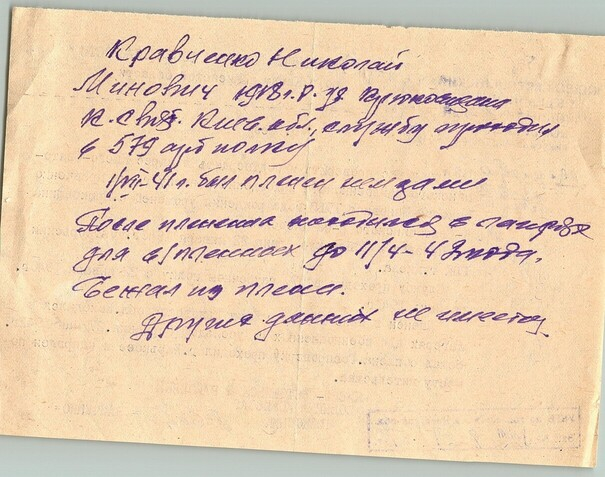 Кравченко Николай
Минович 1918 г.р. ур. Крюковщина
К. Свят. Киев. обл., службу проходил
в 579 арт полку
1/VIII-41 г. был пленен немцами
После пленения находился в лагерях
для в/пленных до 11/4-43 года.
Бежал из плена.
Других данных не имеется